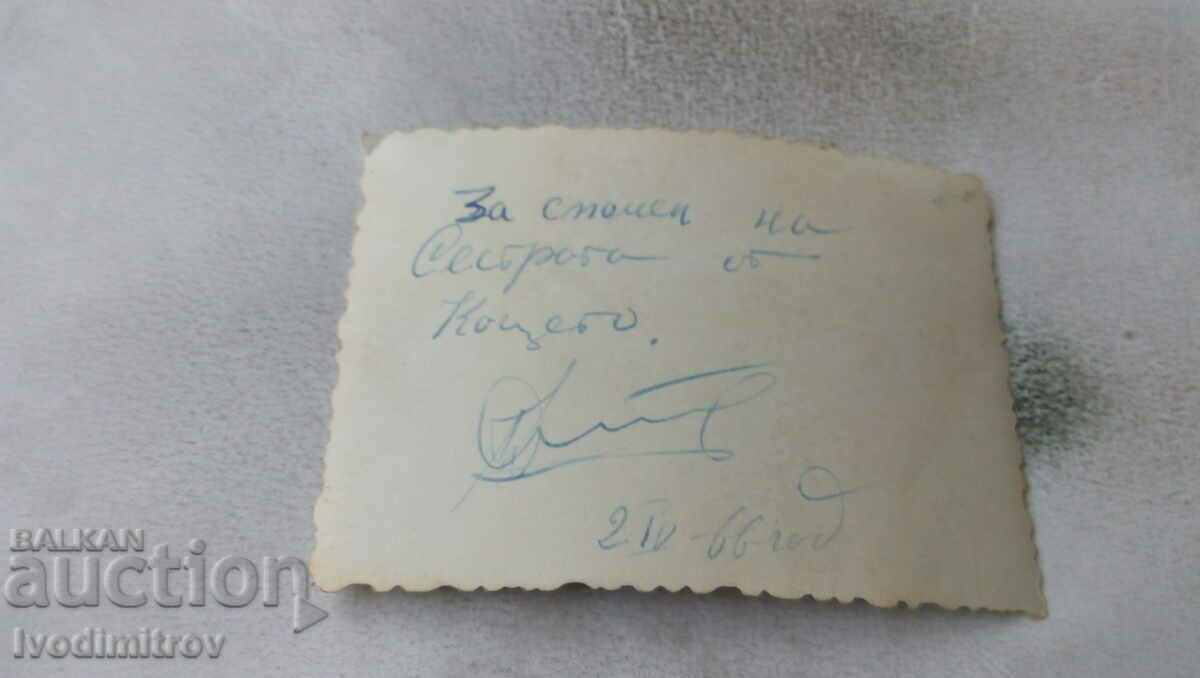 За спомен на
Сестрата от
Коцето.
2 IV - 66 год
BALKAN
auction
Ivodimitrov